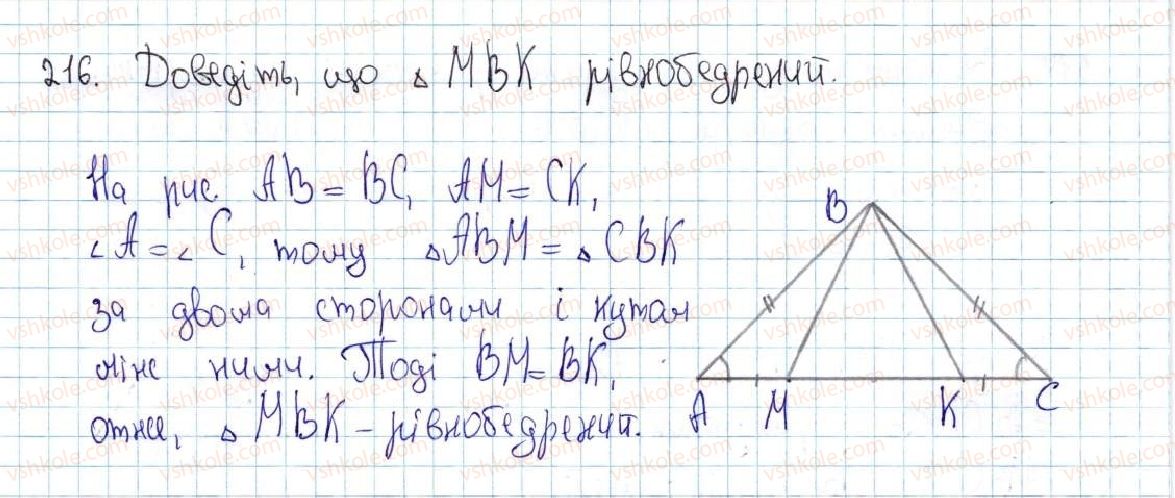 216. Доведіть, що △MBK рівнобедрений.
На рис. AB = BC, AM = CK,
∠A = ∠C, тому △ABM = △CBK
за двома сторонами і кутом
між ними. Тоді BM = BK,
отже, △MBK – рівнобедрений.
B
A M K C
vshkole.com